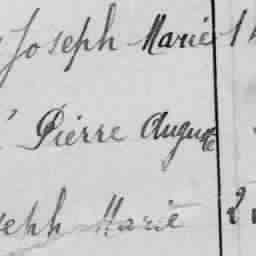 Joseph Marie 1
Pierre Auguste
seph Marie 2